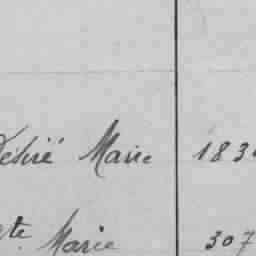 Désiré Marie 183
te Marie 307